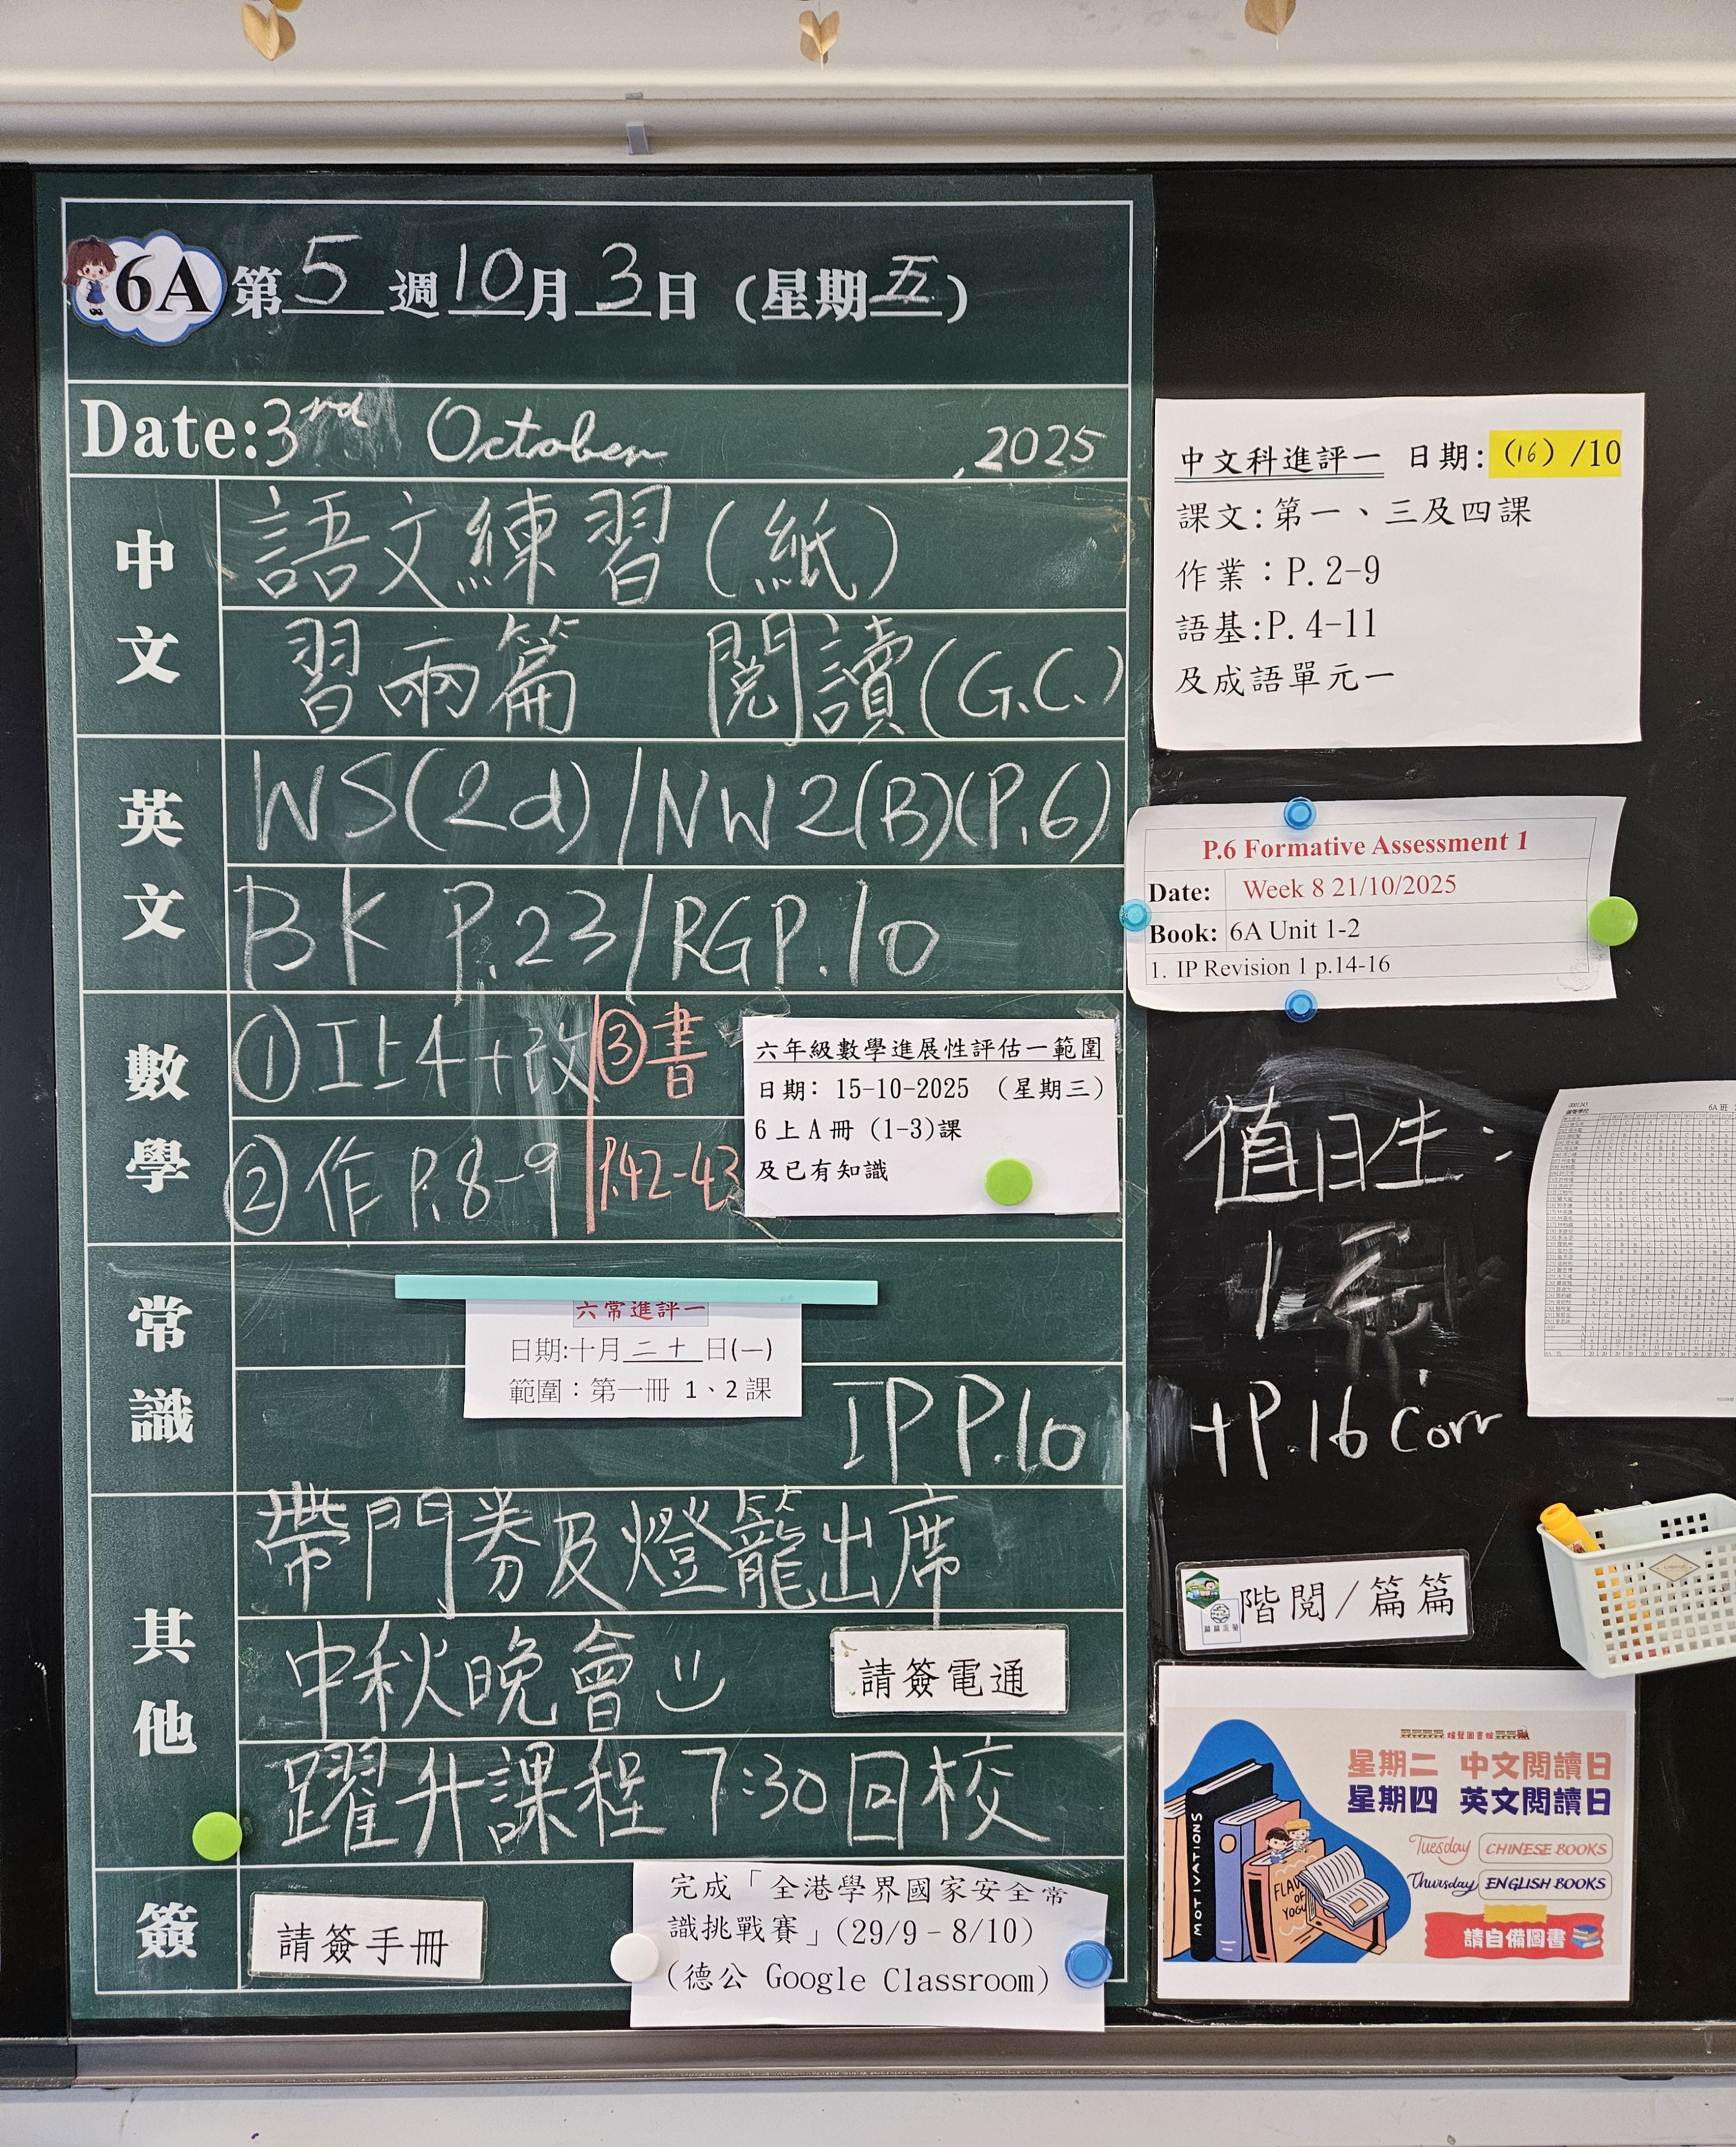 6A 第 5 週 10 月 3 日 (星期 五 )
Date: 3rd October ,2025
中文
語文練習(紙)
習兩篇 閱讀(G.C.)
英文
WS(2d)/NW2(B)(P.6)
BK P.23/RGP.10
數學
① 工上4+改
② 作 P.8-9
③ 書
P.42-43
六年級數學進展性評估一範圍
日期: 15-10-2025 (星期三)
6 上 A 冊 (1-3)課
及已有知識
常識
六常進評一
日期:十月 二十 日(一)
範圍：第一冊 1、2 課
IP P.10
其他
帶門券及燈籠出席
中秋晚會
請簽電通
躍升課程 7:30 回校
簽
請簽手冊
完成「全港學界國家安全常
識挑戰賽」(29/9 – 8/10)
(德公 Google Classroom)
中文科進評一 日期: (16) /10
課文:第一、三及四課
作業：P.2-9
語基:P.4-11
及成語單元一
P.6 Formative Assessment 1
Date: Week 8 21/10/2025
Book: 6A Unit 1-2
1. IP Revision 1 p.14-16
值日生:
+P.16 Corr
6A 班
階閱/篇篇
星期二 中文閱讀日
星期四 英文閱讀日
Tuesday CHINESE BOOKS
Thursday ENGLISH BOOKS
請自備圖書
MOTIVATIONS